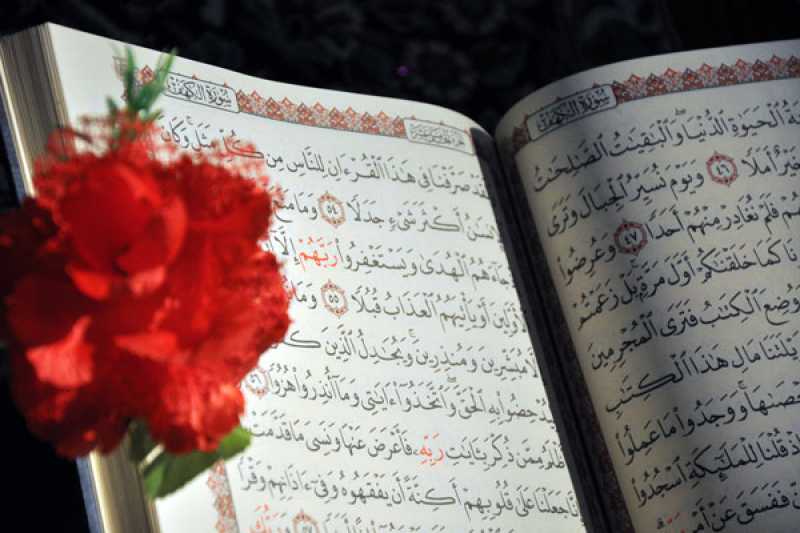 سُورَةُ الْكَهْفِ
الْحَيَوٰةِ الدُّنْيَا وَالْبَٰقِيَٰتُ الصَّٰلِحَٰتُ
أَمَلًا ٤٦ وَيَوْمَ نُسَيِّرُ الْجِبَالَ وَتَرَى
فَلَمْ نُغَادِرْ مِنْهُمْ أَحَدًا ٤٧ وَعُرِضُوا
كَمَا خَلَقْنَٰكُمْ أَوَّلَ مَرَّةٍ بَلْ زَعَمْتُمْ
وُضِعَ الْكِتَٰبُ فَتَرَى الْمُجْرِمِينَ
يَلَتْنَا مَالِ هَٰذَا الْكِتَٰبِ
وَوَجَدُوا مَا عَمِلُوا
قُلْنَا لِلْمَلَٰٓئِكَةِ اسْجُدُوا
فَفَسَقَ عَنْ أَمْرِ
سُورَةُ الْكَهْفِ
صَرَّفْنَا فِي هَٰذَا الْقُرْءَانِ لِلنَّاسِ مِن كُلِّ مَثَلٍ وَكَانَ
أَكْثَرَ شَيْءٍ جَدَلًا ٥٤ وَمَا مَنَعَ
الْهُدَىٰ وَيَسْتَغْفِرُوا رَبَّهُمْ إِلَّا
أَوْ يَأْتِيَهُمُ الْعَذَابُ قُبُلًا ٥٥ وَمَا
مُبَشِّرِينَ وَمُنذِرِينَ وَيُجَٰدِلُ الَّذِينَ
لِيُدْحِضُوا بِهِ الْحَقَّ وَاتَّخَذُوا ءَايَٰتِي وَمَا أُنذِرُوا هُزُوًا ٥٦
أَظْلَمُ مِمَّن ذُكِّرَ بِـَٔايَٰتِ رَبِّهِ فَأَعْرَضَ عَنْهَا وَنَسِيَ مَا قَدَّمَتْ
جَعَلْنَا عَلَىٰ قُلُوبِهِمْ أَكِنَّةً أَن يَفْقَهُوهُ وَفِي ءَاذَانِهِمْ وَقْرًا